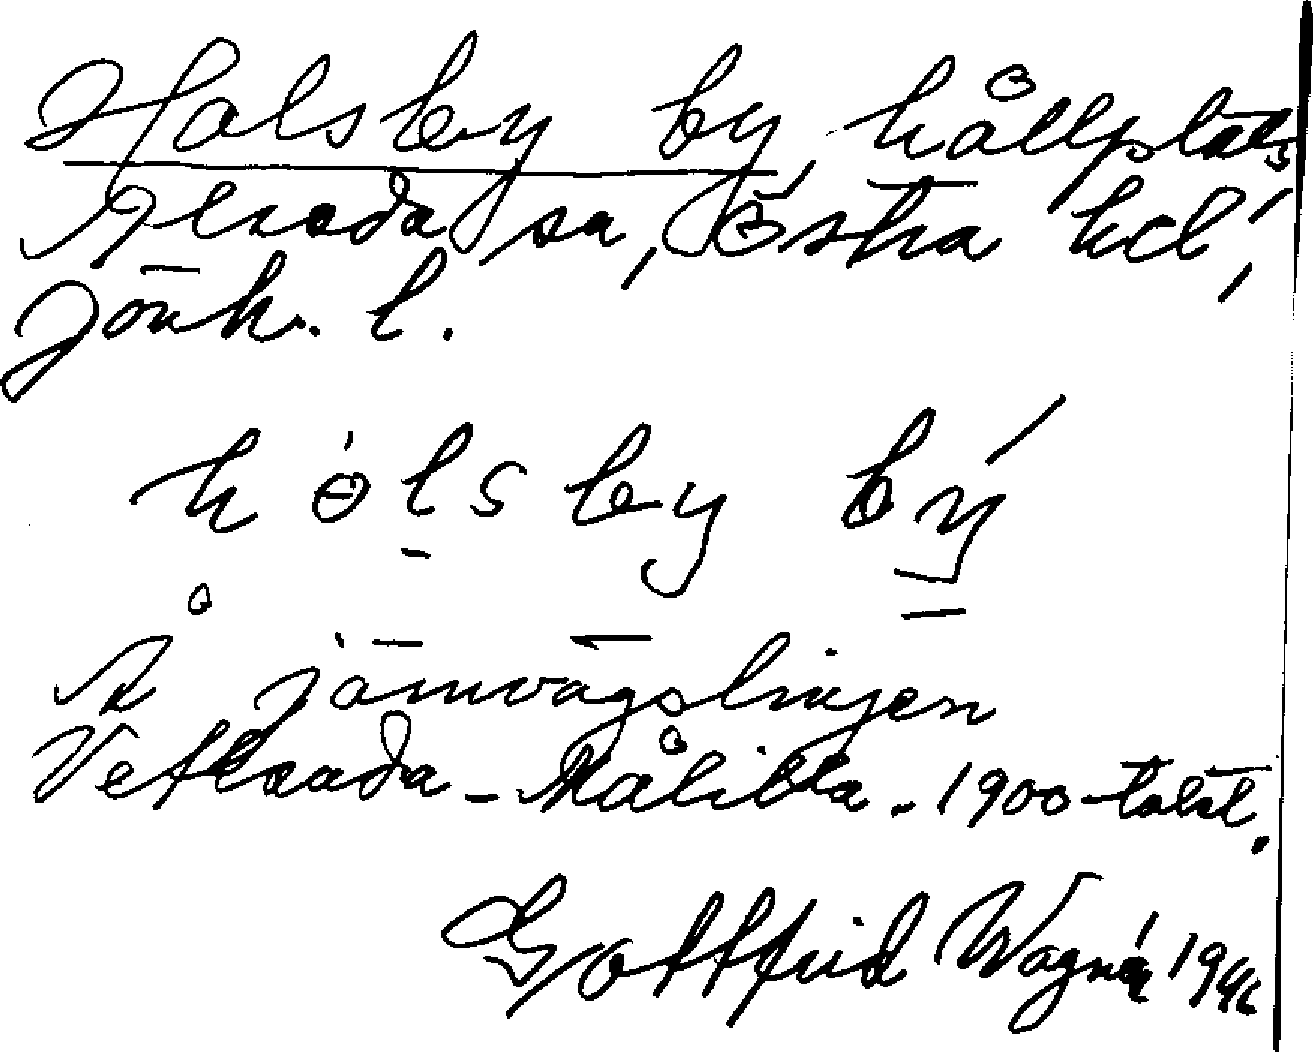 Holsby by, hållplats
Alseda sn, Östra hd,
Jönk. l.
hòlsby bý
Å järnvägslinjen
Vetlanda - Målilla. 1900-talet.
Gottfrid Wagnér 1946